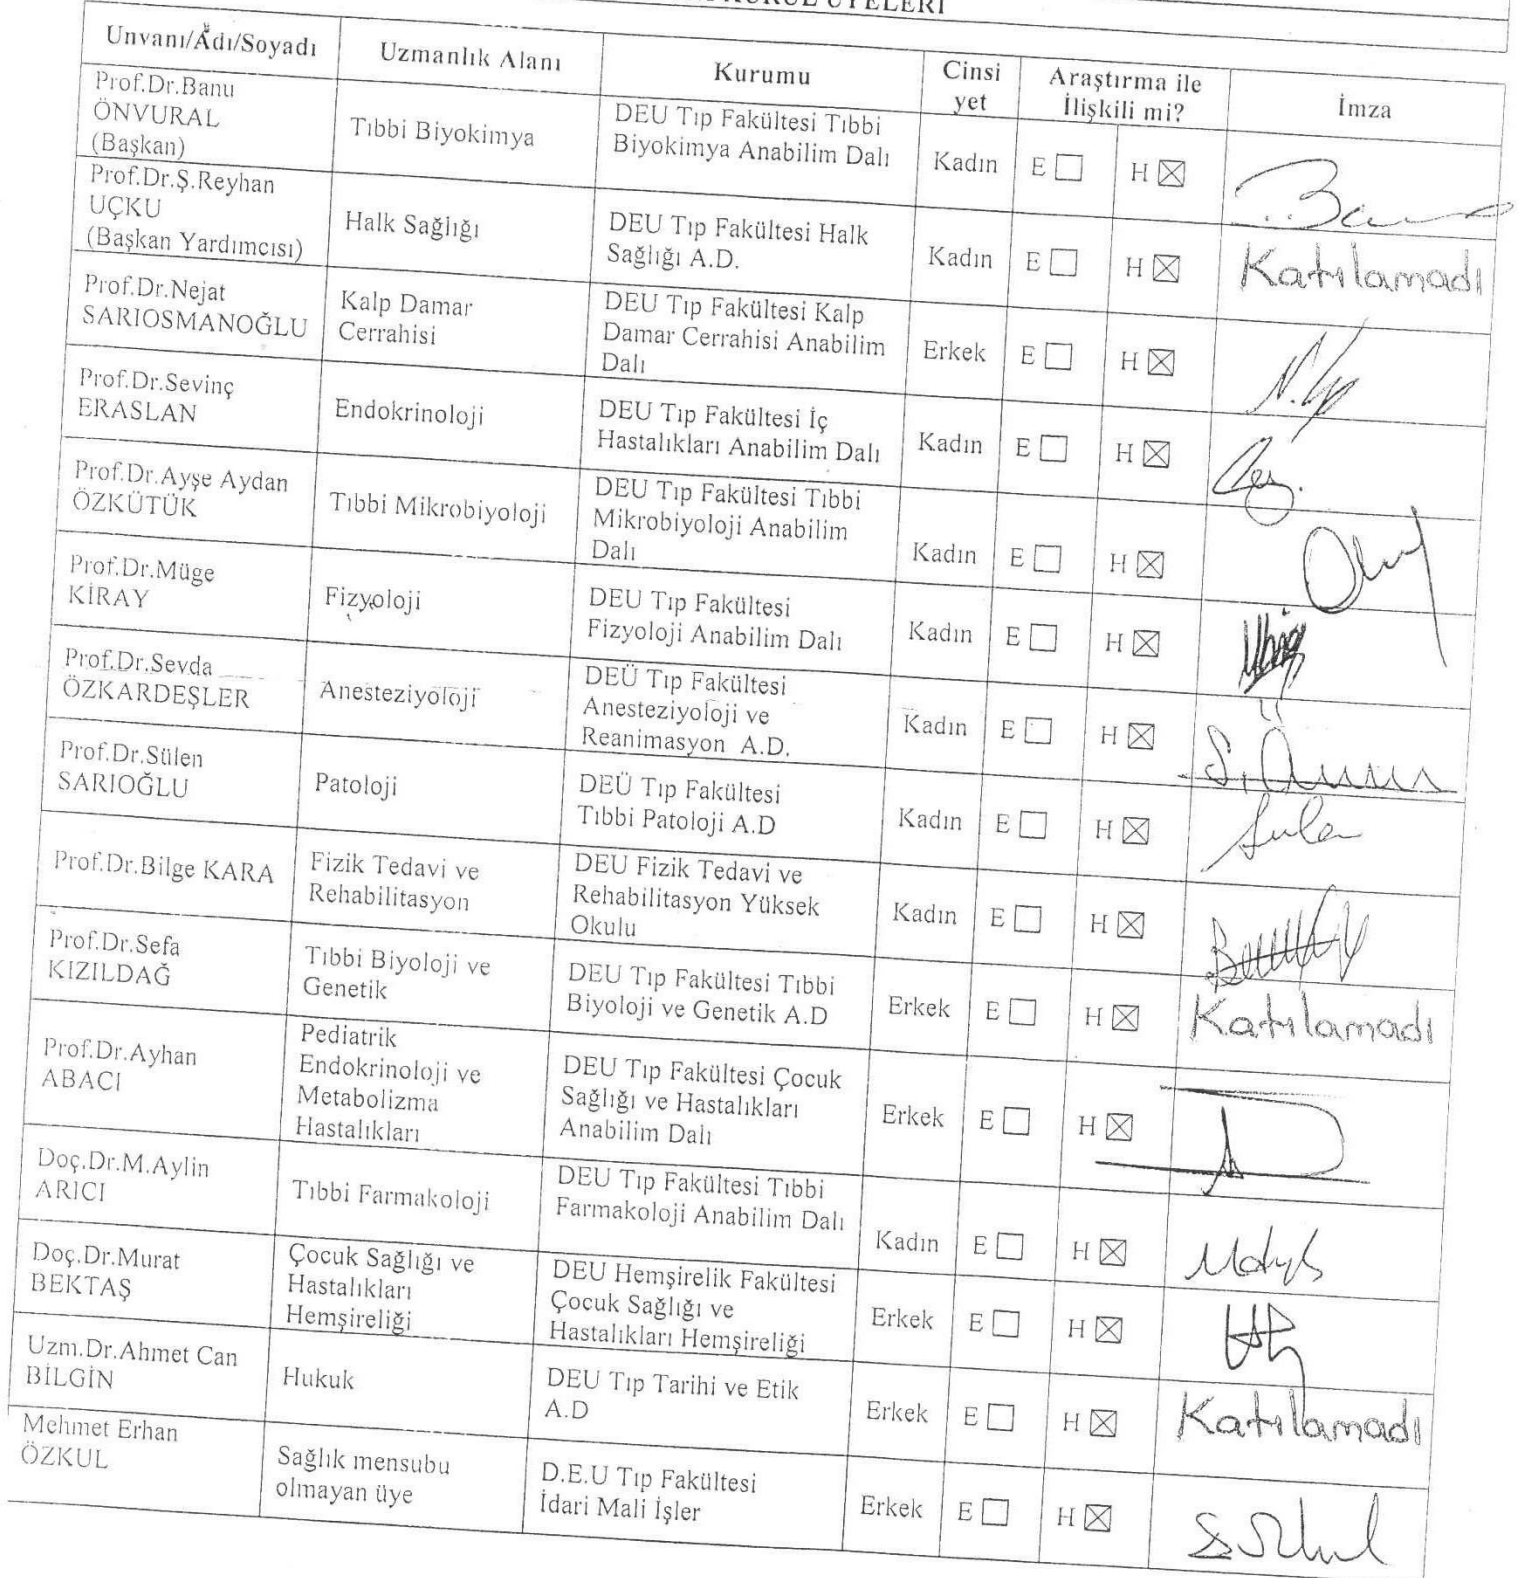 KURUL ÜYELERİ
Unvanı/Adı/Soyadı
Uzmanlık Alanı
Kurumu
Cinsi
yet
Araştırma ile
İlişkili mi?
İmza
Prof.Dr.Banu
ÖNVURAL
(Başkan)
Tıbbi Biyokimya
DEU Tıp Fakültesi Tıbbi
Biyokimya Anabilim Dalı
Kadın
E ☐
H ☒
Prof.Dr.Ş.Reyhan
UÇKU
(Başkan Yardımcısı)
Halk Sağlığı
DEU Tıp Fakültesi Halk
Sağlığı A.D.
Kadın
E ☐
H ☒
Katılamadı
Prof.Dr.Nejat
SARIOSMANOĞLU
Kalp Damar
Cerrahisi
DEU Tıp Fakültesi Kalp
Damar Cerrahisi Anabilim
Dalı
Erkek
E ☐
H ☒
Prof.Dr.Sevinç
ERASLAN
Endokrinoloji
DEU Tıp Fakültesi İç
Hastalıkları Anabilim Dalı
Kadın
E ☐
H ☒
Prof.Dr.Ayşe Aydan
ÖZKÜTÜK
Tıbbi Mikrobiyoloji
DEU Tıp Fakültesi Tıbbi
Mikrobiyoloji Anabilim
Dalı
Kadın
E ☐
H ☒
Prof.Dr.Müge
KİRAY
Fizyoloji
DEU Tıp Fakültesi
Fizyoloji Anabilim Dalı
Kadın
E ☐
H ☒
Prof.Dr.Sevda
ÖZKARDEŞLER
Anesteziyoloji
DEÜ Tıp Fakültesi
Anesteziyoloji ve
Reanimasyon A.D.
Kadın
E ☐
H ☒
Prof.Dr.Sülen
SARIOĞLU
Patoloji
DEÜ Tıp Fakültesi
Tıbbi Patoloji A.D
Kadın
E ☐
H ☒
Prof.Dr.Bilge KARA
Fizik Tedavi ve
Rehabilitasyon
DEU Fizik Tedavi ve
Rehabilitasyon Yüksek
Okulu
Kadın
E ☐
H ☒
Prof.Dr.Sefa
KIZILDAĞ
Tıbbi Biyoloji ve
Genetik
DEU Tıp Fakültesi Tıbbi
Biyoloji ve Genetik A.D
Erkek
E ☐
H ☒
Katılamadı
Prof.Dr.Ayhan
ABACI
Pediatrik
Endokrinoloji ve
Metabolizma
Hastalıkları
DEU Tıp Fakültesi Çocuk
Sağlığı ve Hastalıkları
Anabilim Dalı
Erkek
E ☐
H ☒
Doç.Dr.M.Aylin
ARICI
Tıbbi Farmakoloji
DEU Tıp Fakültesi Tıbbi
Farmakoloji Anabilim Dalı
Kadın
E ☐
H ☒
Doç.Dr.Murat
BEKTAŞ
Çocuk Sağlığı ve
Hastalıkları
Hemşireliği
DEU Hemşirelik Fakültesi
Çocuk Sağlığı ve
Hastalıkları Hemşireliği
Erkek
E ☐
H ☒
Uzm.Dr.Ahmet Can
BİLGİN
Hukuk
DEU Tıp Tarihi ve Etik
A.D
Erkek
E ☐
H ☒
Katılamadı
Mehmet Erhan
ÖZKUL
Sağlık mensubu
olmayan üye
D.E.U Tıp Fakültesi
İdari Mali İşler
Erkek
E ☐
H ☒